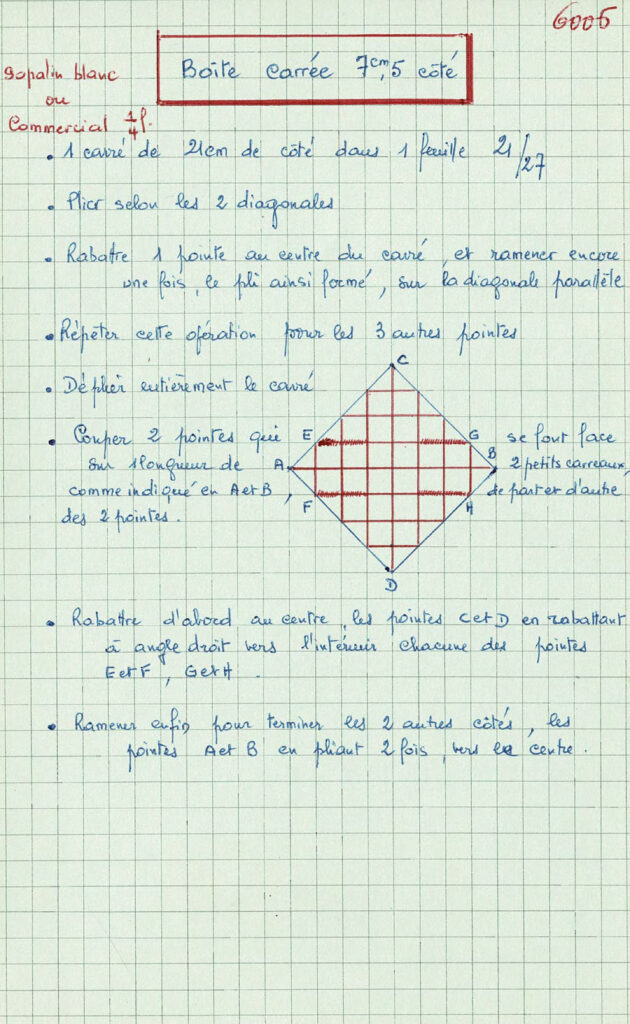 6005
Boîte carrée 7cm,5 côté
Sopalin blanc
ou
Commercial 1/4 f.
• 1 carré de 21cm de côté dans 1 feuille 21/27
• Plier selon les 2 diagonales
• Rabattre 1 pointe au centre du carré, et ramener encore
une fois, le pli ainsi formé, sur la diagonale parallèle
• Répéter cette opération pour les 3 autres pointes
• Déplier entièrement le carré
C
• Couper 2 pointes qui E G se font face
sur 1 longueur de A B 2 petits carreaux,
comme indiqué en A et B, F H de part et d'autre
des 2 pointes.
D
• Rabattre d'abord au centre, les pointes C et D en rabattant
à angle droit vers l'intérieur chacune des pointes
E et F, G et H.
• Ramener enfin pour terminer les 2 autres côtés, les
pointes A et B en pliant 2 fois, vers le centre.